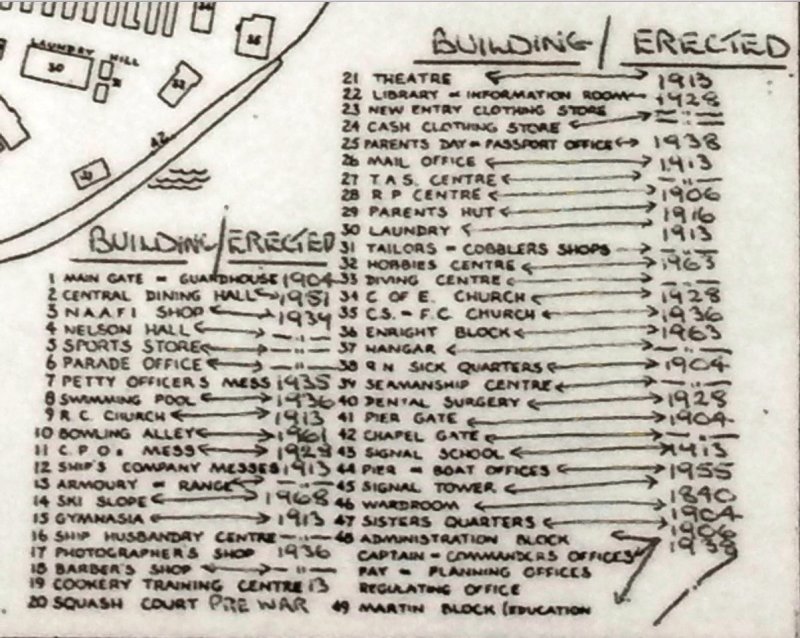 34
35
LAUNDRY HILL
30
31
32
42
37
BUILDING / ERECTED
1 MAIN GATE - GUARDHOUSE 1904
2 CENTRAL DINING HALL 1951
3 N.A.A.F.I SHOP 1934
4 NELSON HALL — " —
5 SPORTS STORE — " —
6 PARADE OFFICE — " —
7 PETTY OFFICERS MESS 1935
8 SWIMMING POOL 1936
9 R.C. CHURCH 1913
10 BOWLING ALLEY 1961
11 C.P.O. MESS 1923
12 SHIP'S COMPANY MESSES 1913
13 ARMOURY - RANGE — " —
14 SKI SLOPE 1968
15 GYMNASIA 1913
16 SHIP HUSBANDRY CENTRE — " —
17 PHOTOGRAPHER'S SHOP 1936
18 BARBER'S SHOP — " —
19 COOKERY TRAINING CENTRE 13
20 SQUASH COURT PRE WAR
BUILDING / ERECTED
21 THEATRE 1913
22 LIBRARY - INFORMATION ROOM 1928
23 NEW ENTRY CLOTHING STORE — " —
24 CASH CLOTHING STORE — " —
25 PARENTS DAY - PASSPORT OFFICE 1938
26 MAIL OFFICE 1913
27 T.A.S. CENTRE — " —
28 R P CENTRE 1906
29 PARENTS HUT 1916
30 LAUNDRY 1913
31 TAILORS - COBBLERS SHOPS — " —
32 HOBBIES CENTRE 1963
33 DIVING CENTRE — " —
34 C OF E. CHURCH 1928
35 C.S. - F.C CHURCH 1936
36 ENRIGHT BLOCK 1963
37 HANGAR — " —
38 R N SICK QUARTERS 1904
39 SEAMANSHIP CENTRE — " —
40 DENTAL SURGERY 1928
41 PIER GATE 1904
42 CHAPEL GATE — " —
43 SIGNAL SCHOOL 1913
44 PIER - BOAT OFFICES 1955
45 SIGNAL TOWER 1840
46 WARDROOM 1904
47 SISTERS QUARTERS 1906
48 ADMINISTRATION BLOCK 1938
CAPTAIN - COMMANDERS OFFICES
PAY - PLANNING OFFICES
REGULATING OFFICE
49 MARTIN BLOCK (EDUCATION